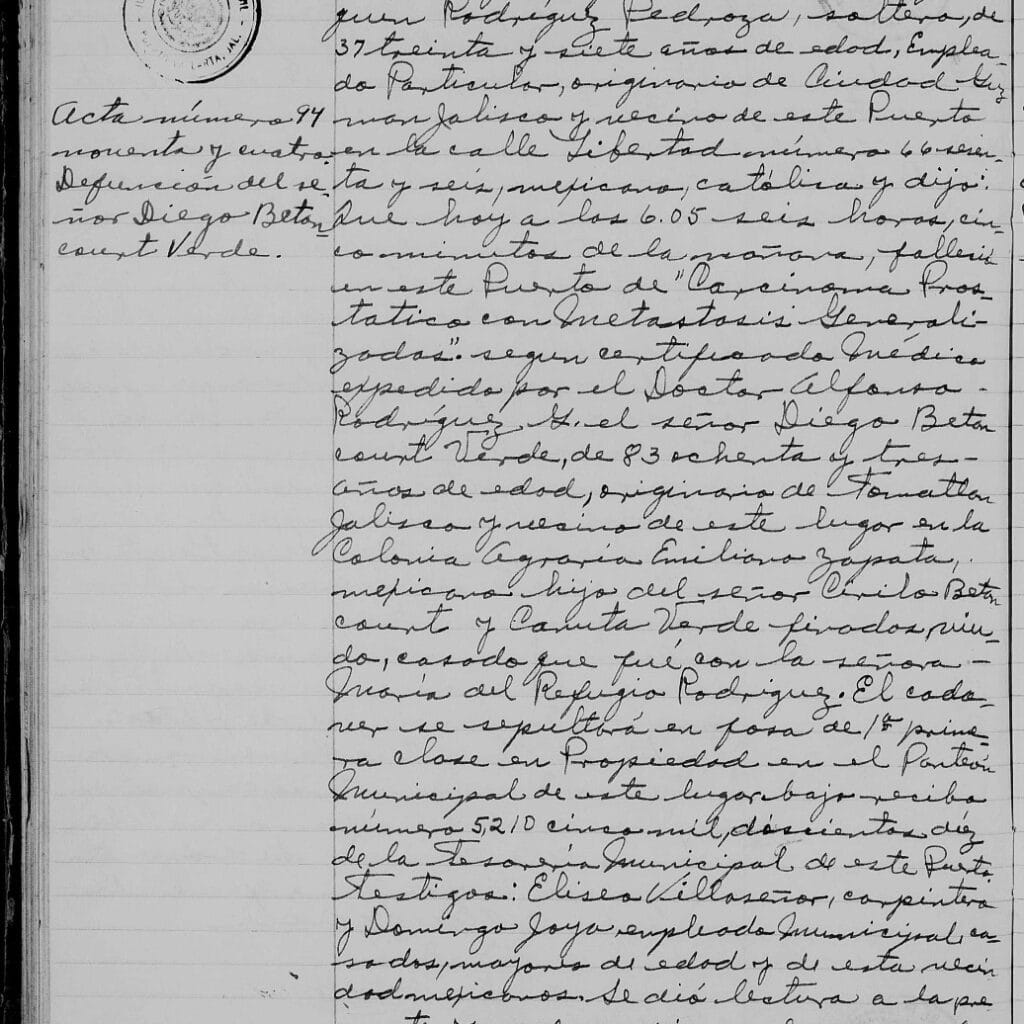 VALLARTA, JAL.
Acta número 94
noventa y cuatro.
Defunción del se-
ñor Diego Betan
court Verde.
quen Rodríguez Pedroza, soltero, de
37 treinta y siete años de edad, Emplea-
do Particular, originario de Ciudad Guz
man Jalisco y vecino de este Puerto
en la calle Libertad número 66 sesen-
ta y seis, mexicano, católico y dijo:
Que hoy a las 6.05 seis horas, cin-
co minutos de la mañana, falleció
en este Puerto de "Carcinoma Pros-
tatico con Metastasis Generali-
zadas". segun certificado Médico
expedido por el Doctor Alfonso -
Rodríguez G. el señor Diego Betan
court Verde, de 83 ochenta y tres -
años de edad, originario de Tomatlan
Jalisco y vecino de este lugar en la
Colonia Agraria Emiliano Zapata,
mexicano hijo del señor Cirilo Betan
court y Canuta Verde finados, viu-
do, casado que fué con la señora -
María del Refugio Rodriguez. El cada-
ver se sepultará en fosa de 1ª prime-
ra clase en Propiedad en el Panteón
Municipal de este lugar bajo recibo
número 5,210 cinco mil, doscientos diéz
de la Tesorería Municipal de este Puerto.
Testigos: Eliseo Villaseñor, carpintero
y Domingo Joya empleado Municipal, ca-
sados, mayores de edad y de esta vecin
dad mexicanos. Se dió lectura a la pre